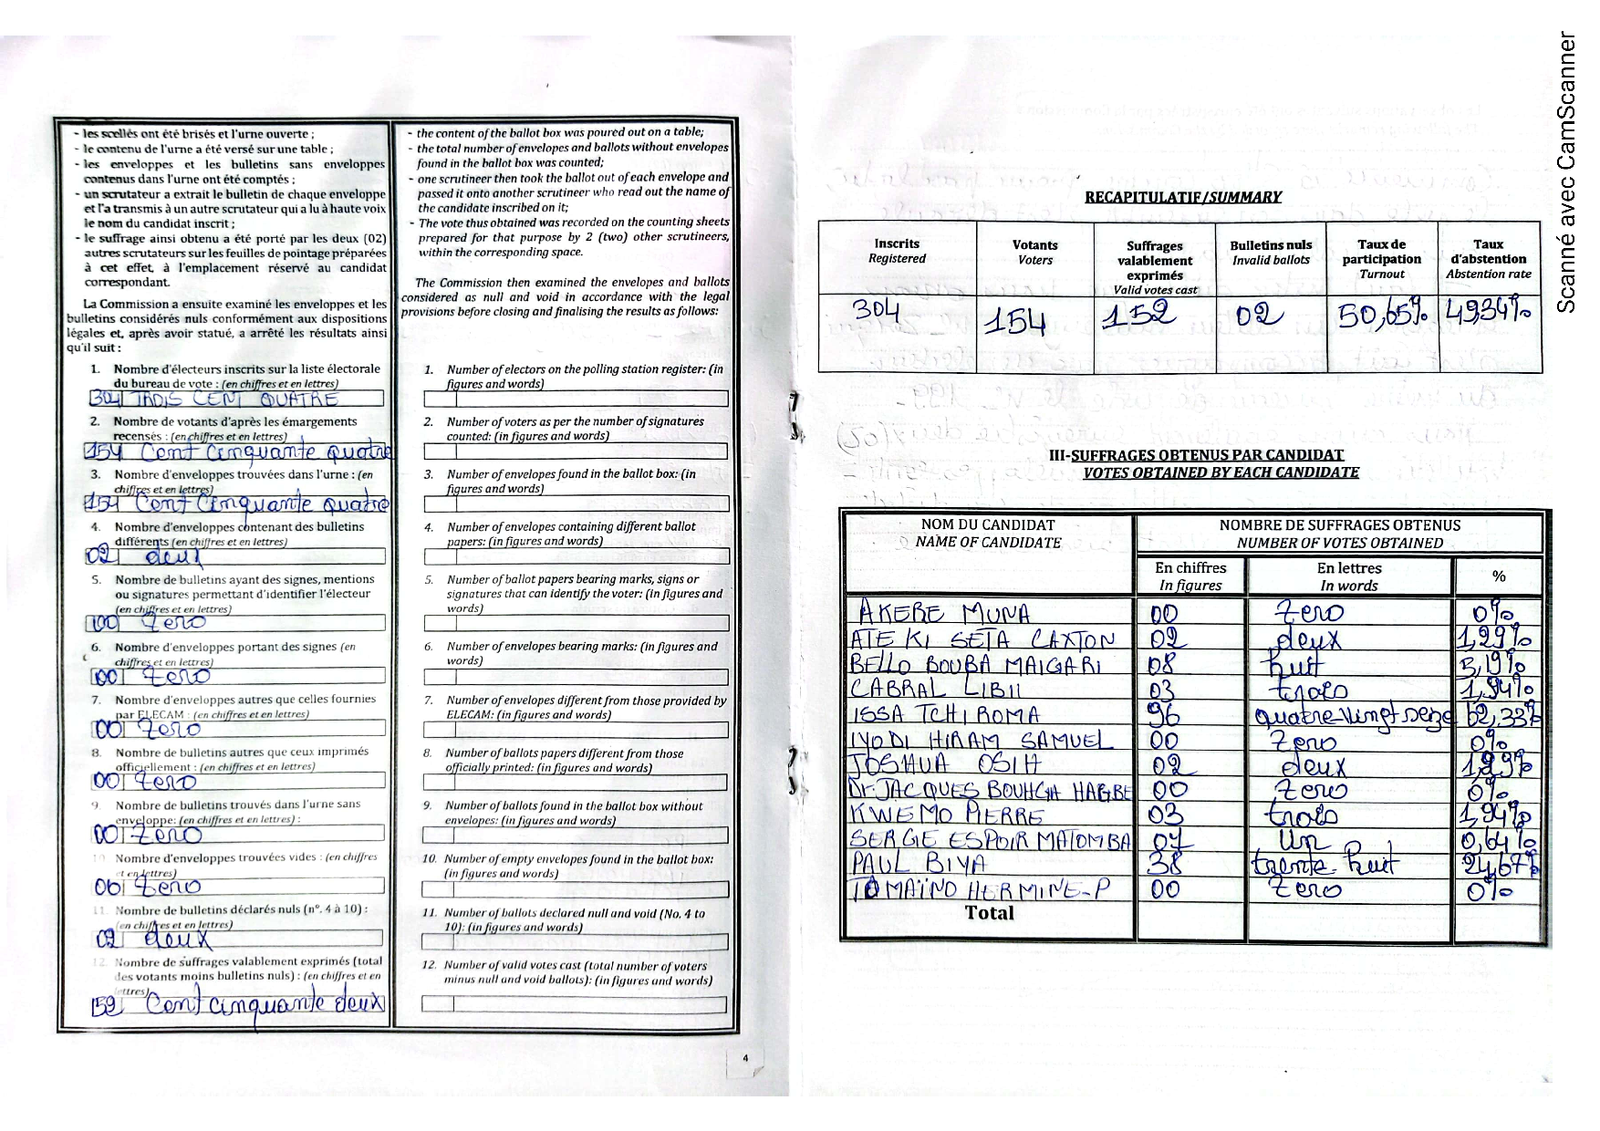 - les scellés ont été brisés et l'urne ouverte ;
- le contenu de l'urne a été versé sur une table ;
- les enveloppes et les bulletins sans enveloppes
contenus dans l'urne ont été comptés ;
- un scrutateur a extrait le bulletin de chaque enveloppe
et l'a transmis à un autre scrutateur qui a lu à haute voix
le nom du candidat inscrit ;
- le suffrage ainsi obtenu a été porté par les deux (02)
autres scrutateurs sur les feuilles de pointage préparées
à cet effet, à l'emplacement réservé au candidat
correspondant.
La Commission a ensuite examiné les enveloppes et les
bulletins considérés nuls conformément aux dispositions
légales et, après avoir statué, a arrêté les résultats ainsi
qu'il suit :
1. Nombre d'électeurs inscrits sur la liste électorale
du bureau de vote : (en chiffres et en lettres)
304 TROIS CENT QUATRE
2. Nombre de votants d'après les émargements
recensés : (en chiffres et en lettres)
154 Cent Cinquante quatre
3. Nombre d'enveloppes trouvées dans l'urne : (en
chiffres et en lettres)
154 Cent Cinquante quatre
4. Nombre d'enveloppes contenant des bulletins
différents (en chiffres et en lettres)
02 deux
5. Nombre de bulletins ayant des signes, mentions
ou signatures permettant d'identifier l'électeur
(en chiffres et en lettres)
00 Zero
6. Nombre d'enveloppes portant des signes (en
chiffres et en lettres)
00 Zero
7. Nombre d'enveloppes autres que celles fournies
par ELECAM : (en chiffres et en lettres)
00 Zero
8. Nombre de bulletins autres que ceux imprimés
officiellement : (en chiffres et en lettres)
00 Zero
9. Nombre de bulletins trouvés dans l'urne sans
enveloppe: (en chiffres et en lettres) :
00 Zero
10. Nombre d'enveloppes trouvées vides : (en chiffres
et en lettres)
00 Zero
11. Nombre de bulletins déclarés nuls (n°. 4 à 10) :
(en chiffres et en lettres)
02 deux
12. Nombre de suffrages valablement exprimés (total
des votants moins bulletins nuls) : (en chiffres et en
lettres)
152 Cent cinquante deux
- the content of the ballot box was poured out on a table;
- the total number of envelopes and ballots without envelopes
found in the ballot box was counted;
- one scrutineer then took the ballot out of each envelope and
passed it onto another scrutineer who read out the name of
the candidate inscribed on it;
- The vote thus obtained was recorded on the counting sheets
prepared for that purpose by 2 (two) other scrutineers,
within the corresponding space.
The Commission then examined the envelopes and ballots
considered as null and void in accordance with the legal
provisions before closing and finalising the results as follows:
1. Number of electors on the polling station register: (in
figures and words)
2. Number of voters as per the number of signatures
counted: (in figures and words)
3. Number of envelopes found in the ballot box: (in
figures and words)
4. Number of envelopes containing different ballot
papers: (in figures and words)
5. Number of ballot papers bearing marks, signs or
signatures that can identify the voter: (in figures and
words)
6. Number of envelopes bearing marks: (in figures and
words)
7. Number of envelopes different from those provided by
ELECAM: (in figures and words)
8. Number of ballots papers different from those
officially printed: (in figures and words)
9. Number of ballots found in the ballot box without
envelopes: (in figures and words)
10. Number of empty envelopes found in the ballot box:
(in figures and words)
11. Number of ballots declared null and void (No. 4 to
10): (in figures and words)
12. Number of valid votes cast (total number of voters
minus null and void ballots): (in figures and words)
4
RECAPITULATIF/SUMMARY
Inscrits Registered | Votants Voters | Suffrages valablement exprimés Valid votes cast | Bulletins nuls Invalid ballots | Taux de participation Turnout | Taux d'abstention Abstention rate
304 | 154 | 152 | 02 | 50,65% | 49,34%
III-SUFFRAGES OBTENUS PAR CANDIDAT
VOTES OBTAINED BY EACH CANDIDATE
NOM DU CANDIDAT | NOMBRE DE SUFFRAGES OBTENUS
NAME OF CANDIDATE | NUMBER OF VOTES OBTAINED
En chiffres | En lettres | %
In figures | In words
AKERE MUNA | 00 | Zero | 0%
ATEKI SETA CAXTON | 02 | deux | 1,29%
BELLO BOUBA MAIGARI | 08 | huit | 5,19%
CABRAL LIBII | 03 | trois | 1,94%
ISSA TCHIROMA | 96 | quatre-vingt seize | 62,33%
IYODI HIRAM SAMUEL | 00 | Zero | 0%
JOSHUA OSIH | 02 | deux | 1,29%
Dr JACQUES BOUHGA HAGBE | 00 | Zero | 0%
KWEMO PIERRE | 03 | trois | 1,94%
SERGE ESPOIR MATOMBA | 01 | Un | 0,64%
PAUL BIYA | 38 | trente huit | 24,67%
TOMAÏNO HERMINE-P | 00 | Zero | 0%
Total
Scanné avec CamScanner